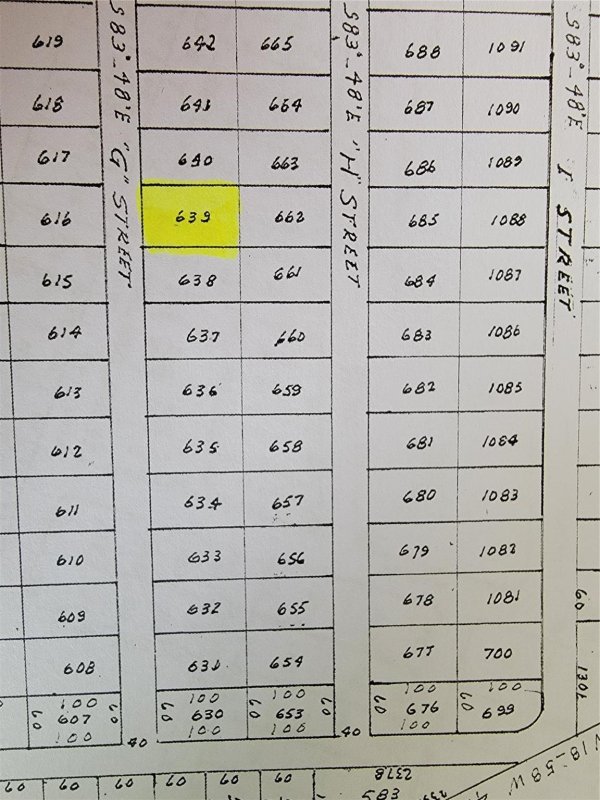 619 642 665 688 1091
618 641 664 687 1090
617 640 663 686 1089
616 639 662 685 1088
615 638 661 684 1087
614 637 660 683 1086
613 636 659 682 1085
612 635 658 681 1084
611 634 657 680 1083
610 633 656 679 1082
609 632 655 678 1081
608 631 654 677 700
100 100 100 100 100
60 607 60 60 630 60 653 60 60 676 60 699
100 100 100 100
40 40
S83°-48'E "G" STREET
S83°-48'E "H" STREET
S83°-48'E I STREET
60
1301
N18-58W
2378
385
60 60 60 60 60 60